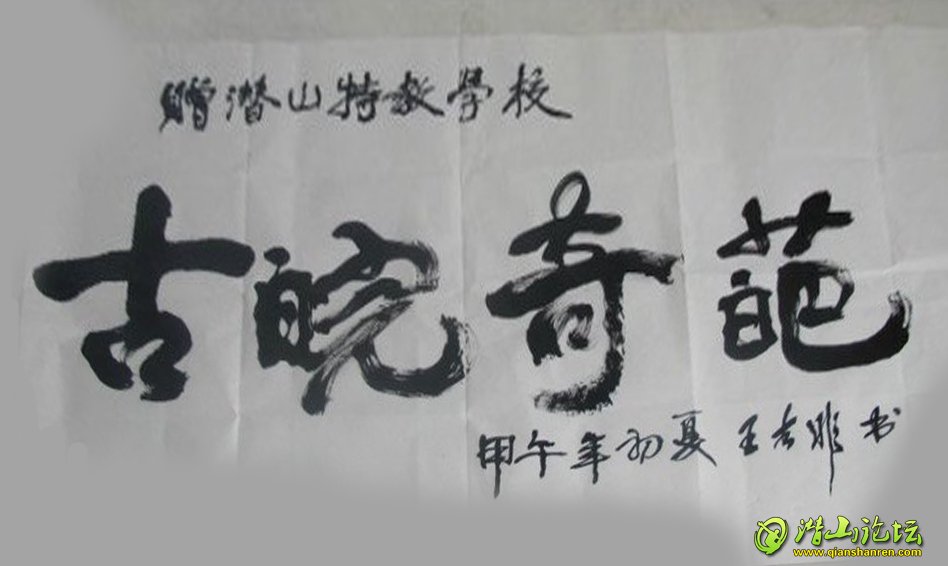 赠潜山特教學校
古皖奇葩
甲午年初夏 王吉非书
潜山论坛
www.qianshanren.com